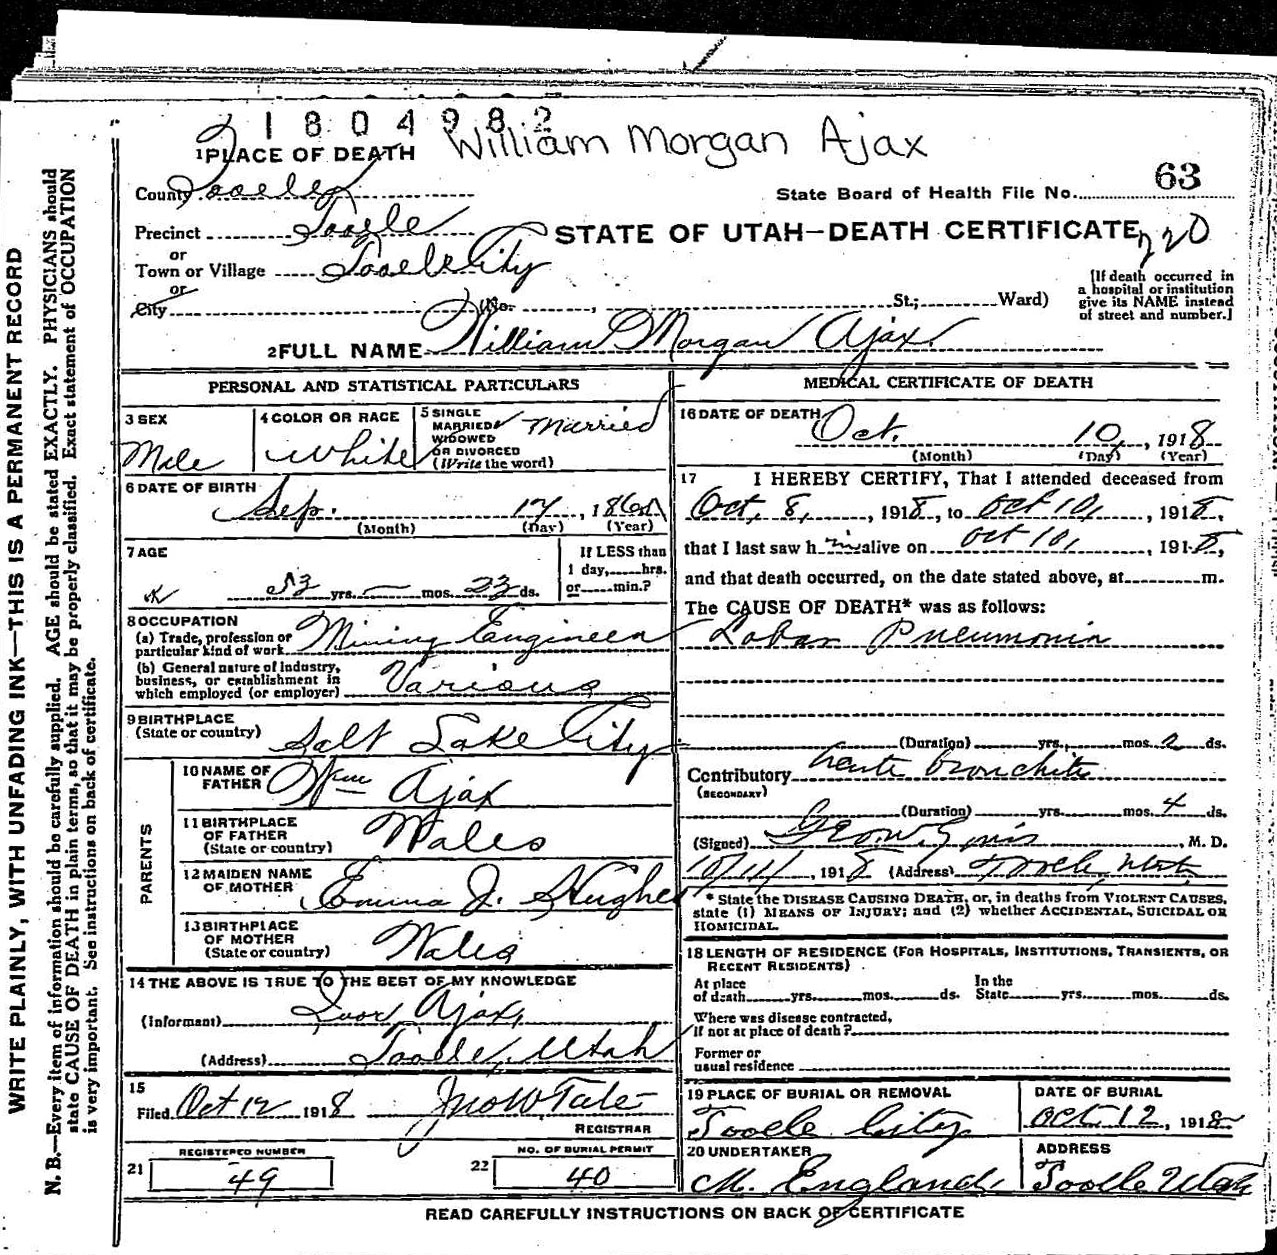 2 1 8 0 4 9 8 2
William Morgan Ajax
1 PLACE OF DEATH
County Tooele
State Board of Health File No. 63
Precinct Tooele
STATE OF UTAH—DEATH CERTIFICATE
220
or
Town or Village Tooele City
or
City No. St.; Ward)
[If death occurred in
a hospital or institution
give its NAME instead
of street and number.]
2 FULL NAME William Morgan Ajax
PERSONAL AND STATISTICAL PARTICULARS
3 SEX
Male
4 COLOR OR RACE
White
5 SINGLE
MARRIED
WIDOWED
OR DIVORCED
(Write the word)
Married
6 DATE OF BIRTH
Sep. 17, 186
(Month) (Day) (Year)
7 AGE
53 yrs. — mos. 23 ds.
If LESS than
1 day, hrs.
or min.?
8 OCCUPATION
(a) Trade, profession or
particular kind of work Mining Engineer
(b) General nature of industry,
business, or establishment in
which employed (or employer) Various
9 BIRTHPLACE
(State or country) Salt Lake City
PARENTS
10 NAME OF
FATHER Wm Ajax
11 BIRTHPLACE
OF FATHER
(State or country) Wales
12 MAIDEN NAME
OF MOTHER Emma J. Hughes
13 BIRTHPLACE
OF MOTHER
(State or country) Wales
14 THE ABOVE IS TRUE TO THE BEST OF MY KNOWLEDGE
(Informant) Ivor Ajax,
(Address) Tooele, Utah
15
Filed Oct 12 1918 Jno W Tate
REGISTRAR
REGISTERED NUMBER
21 49
NO. OF BURIAL PERMIT
22 40
MEDICAL CERTIFICATE OF DEATH
16 DATE OF DEATH
Oct. 10, 1918
(Month) (Day) (Year)
17 I HEREBY CERTIFY, That I attended deceased from
Oct, 8, 1918, to Oct 10, 1918,
that I last saw him alive on Oct 10, 1918,
and that death occurred, on the date stated above, at m.
The CAUSE OF DEATH* was as follows:
Lobar Pneumonia
(Duration) yrs. mos. 2 ds.
Contributory Acute bronchitis
(SECONDARY)
(Duration) yrs. mos. 4 ds.
(Signed) M. D.
10/11/, 1918 (Address) Tooele, Utah
* State the DISEASE CAUSING DEATH, or, in deaths from VIOLENT CAUSES,
state (1) MEANS OF INJURY; and (2) whether ACCIDENTAL, SUICIDAL OR
HOMICIDAL.
18 LENGTH OF RESIDENCE (FOR HOSPITALS, INSTITUTIONS, TRANSIENTS, OR
RECENT RESIDENTS)
At place
of death yrs. mos. ds.
In the
State yrs. mos. ds.
Where was disease contracted,
if not at place of death?
Former or
usual residence
19 PLACE OF BURIAL OR REMOVAL
Tooele City
DATE OF BURIAL
Oct. 12, 1918
20 UNDERTAKER
M. England
ADDRESS
Tooele Utah
READ CAREFULLY INSTRUCTIONS ON BACK OF CERTIFICATE
WRITE PLAINLY, WITH UNFADING INK—THIS IS A PERMANENT RECORD
N. B.—Every item of information should be carefully supplied. AGE should be stated EXACTLY. PHYSICIANS should
state CAUSE OF DEATH in plain terms, so that it may be properly classified. Exact statement of OCCUPATION
is very important. See instructions on back of certificate.